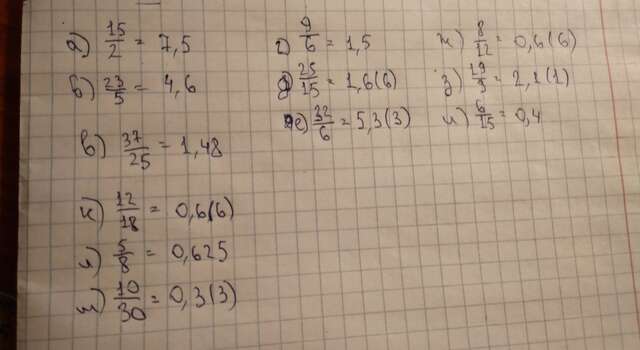 а) 15/2 = 7,5
б) 23/5 = 4,6
в) 37/25 = 1,48
к) 12/18 = 0,6(6)
л) 5/8 = 0,625
м) 10/30 = 0,3(3)
г) 9/6 = 1,5
д) 25/15 = 1,6(6)
е) 32/6 = 5,3(3)
ж) 8/12 = 0,6(6)
з) 19/9 = 2,1(1)
и) 6/15 = 0,4